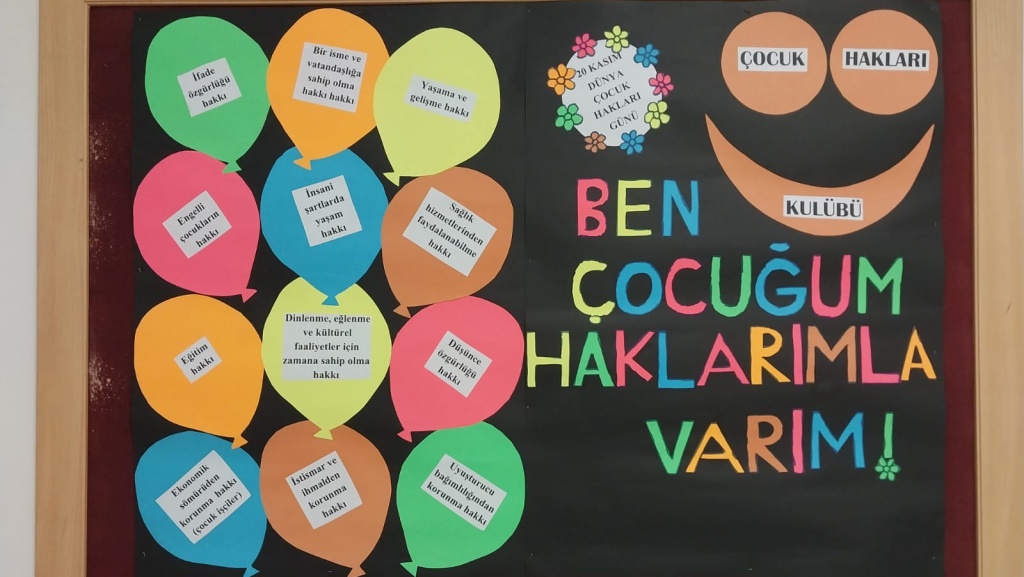 İfade
özgürlüğü
hakkı
Bir isme ve
vatandaşlığa
sahip olma
hakkı hakkı
Yaşama ve
gelişme hakkı
Engelli
çocukların
hakkı
İnsani
şartlarda
yaşam
hakkı
Sağlık
hizmetlerinden
faydalanabilme
hakkı
Eğitim
hakkı
Dinlenme, eğlenme
ve kültürel
faaliyetler için
zamana sahip olma
hakkı
Düşünce
özgürlüğü
hakkı
Ekonomik
sömürüden
korunma hakkı
(çocuk işçiler)
İstismar ve
ihmalden
korunma
hakkı
Uyuşturucu
bağımlılığından
korunma hakkı
20 KASIM
DÜNYA
ÇOCUK
HAKLARI
GÜNÜ
ÇOCUK HAKLARI
KULÜBÜ
BEN
ÇOCUĞUM
HAKLARIMLA
VARIM!